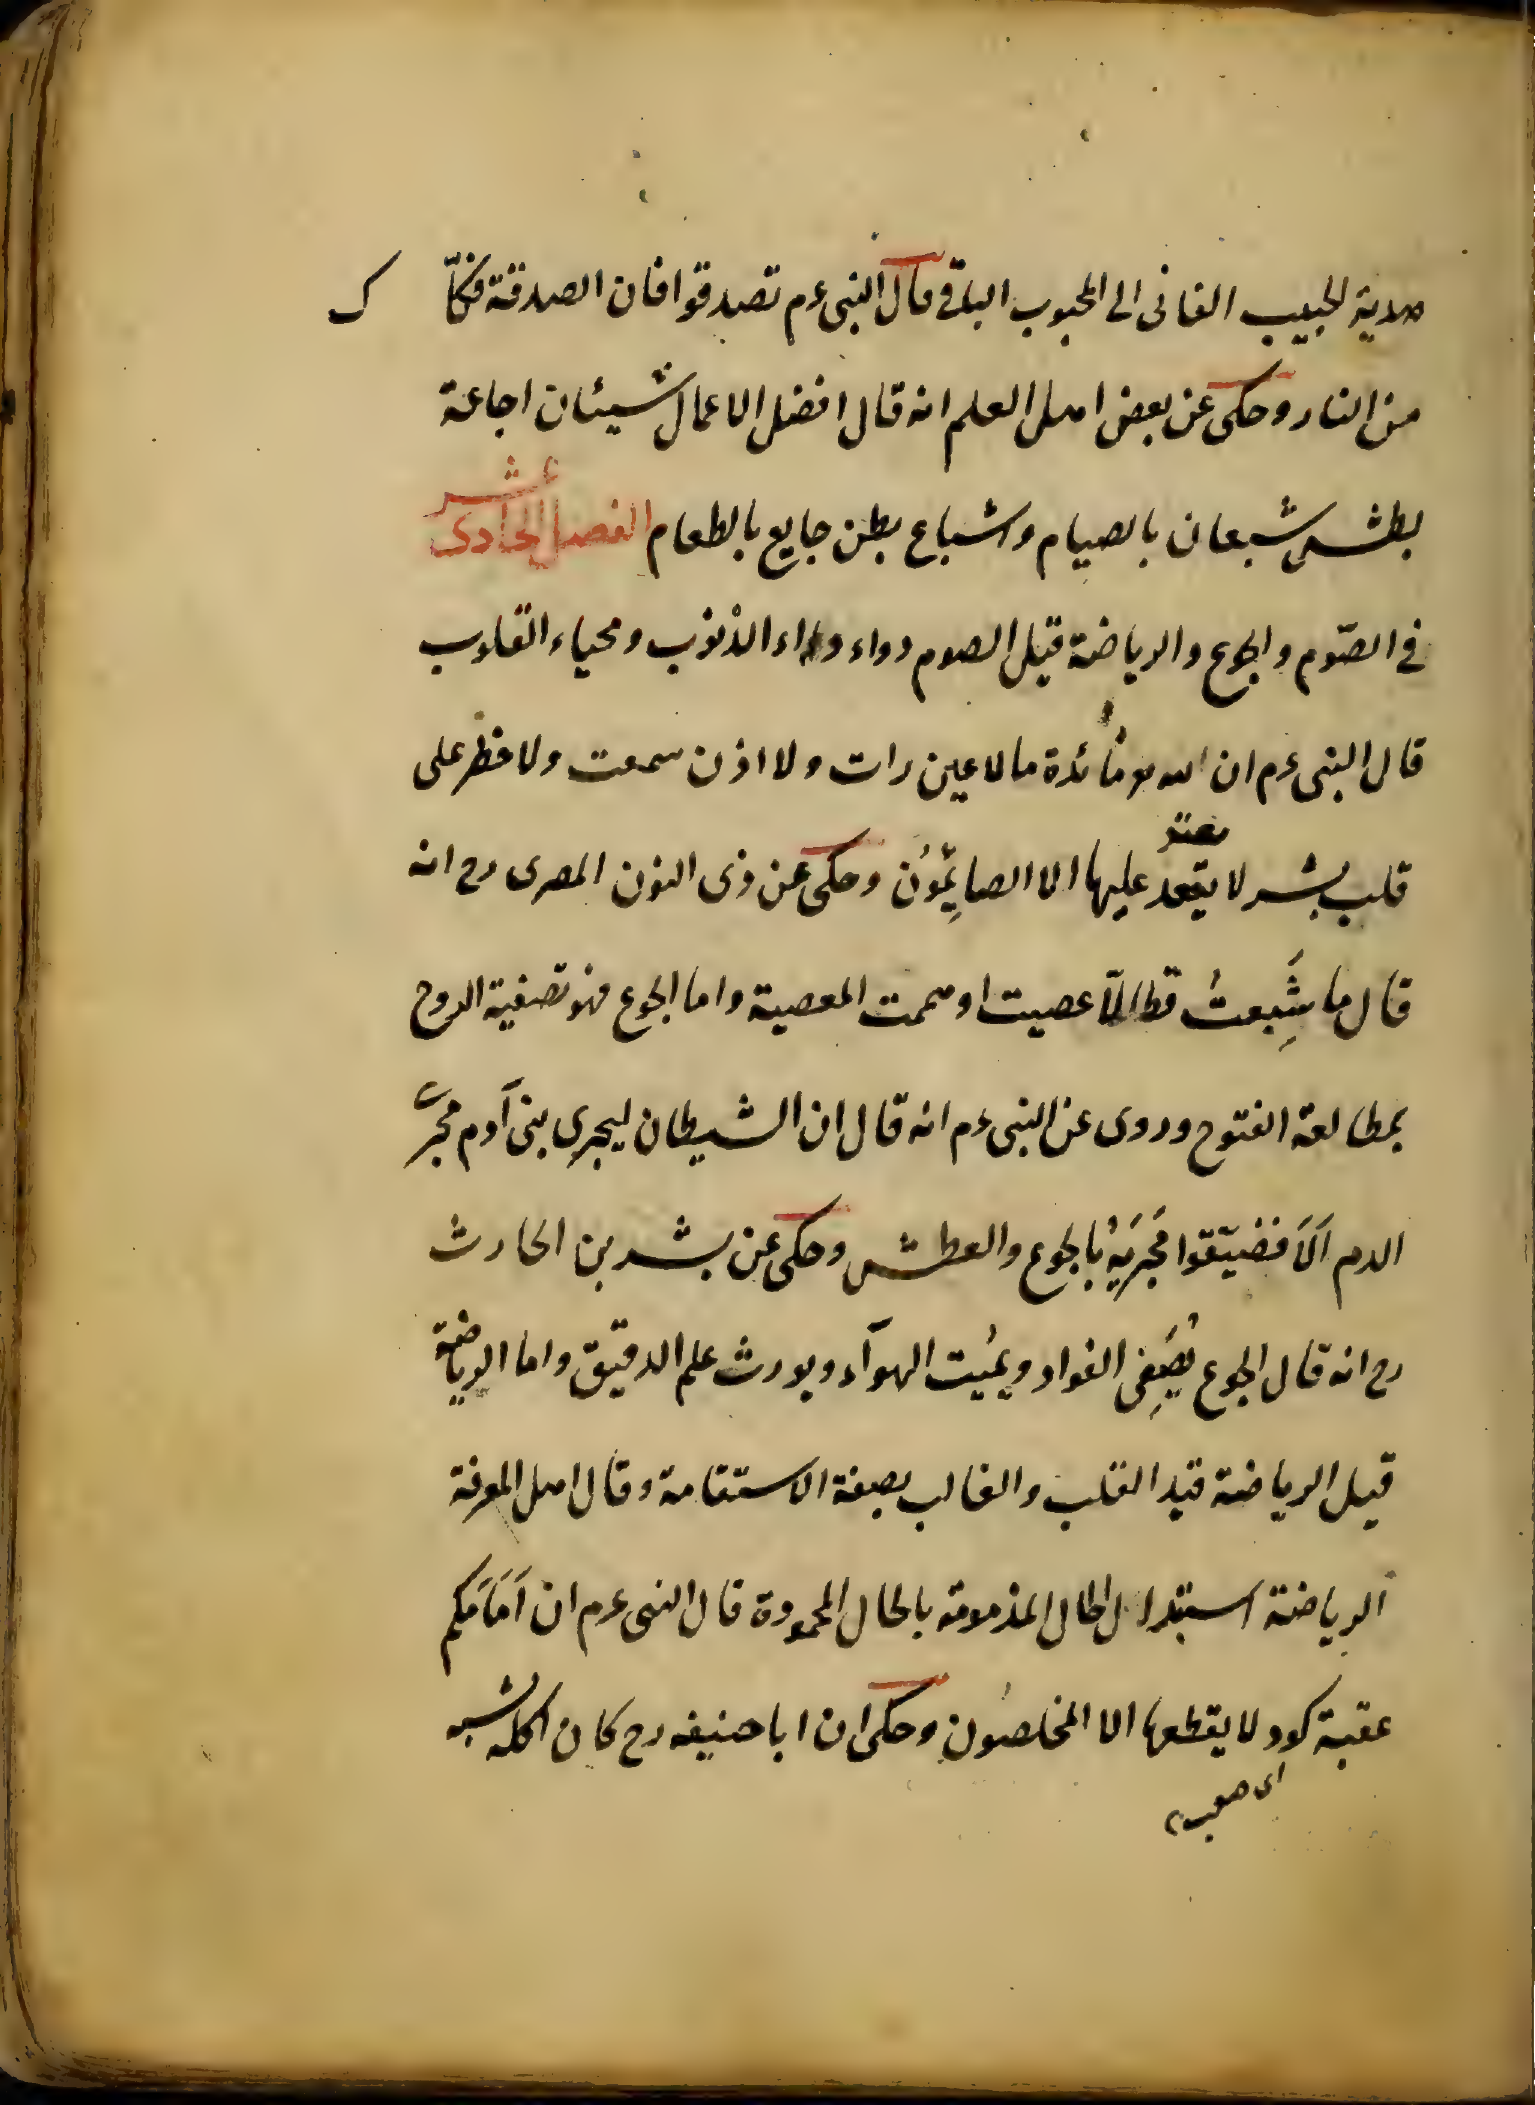 هدية الحبيب الفانى الى المحبوب الباقى قال النبى عم تصدقوا فان الصدقة فكا ك
من النار وحكى عن بعض اهل العلم انه قال افضل الاعمال شيئان اجاعة
بطن شبعان بالصيام واشباع بطن جايع بالطعام الفصل الحادى عشر
فى الصوم والجوع والرياضة قيل الصوم دواء داء الذنوب ومحياء القلوب
قال النبى عم ان لله مائدة ما لا عين رات ولا اذن سمعت ولا خطر على
قلب بشر لا يقعد عليها الا الصايِمُون وحكى عن ذى النون المصرى رح انه
قال ما شَبِعتُ قط الّا عصيت او هممت المعصية واما الجوع فهو تصفية الروح
بمطالعة الفتوح وروى عن النبى عم انه قال ان الشيطان ليجرى بنى آدم مجرى
الدم اَلَا فضيّقوا مَجرَيهُ بالجوع والعطش وحكى عن بشر بن الحارث
رح انه قال الجوع يُصَفِى الفواد ويمُيت الهوآء ويورث علم الدقيق واما الرياضة
قيل الرياضة قيد القلب والقالب بصفة الاستقامة وقال اهل المعرفة
الرياضة استبدال الحال المذمومة بالحال المحمودة قال النبى عم ان اَمَامَكم
عقبة كود لا يقطعها الا المخلصُون وحكى ان ابا حنيفه رح كان اكله شبه
اى صعب